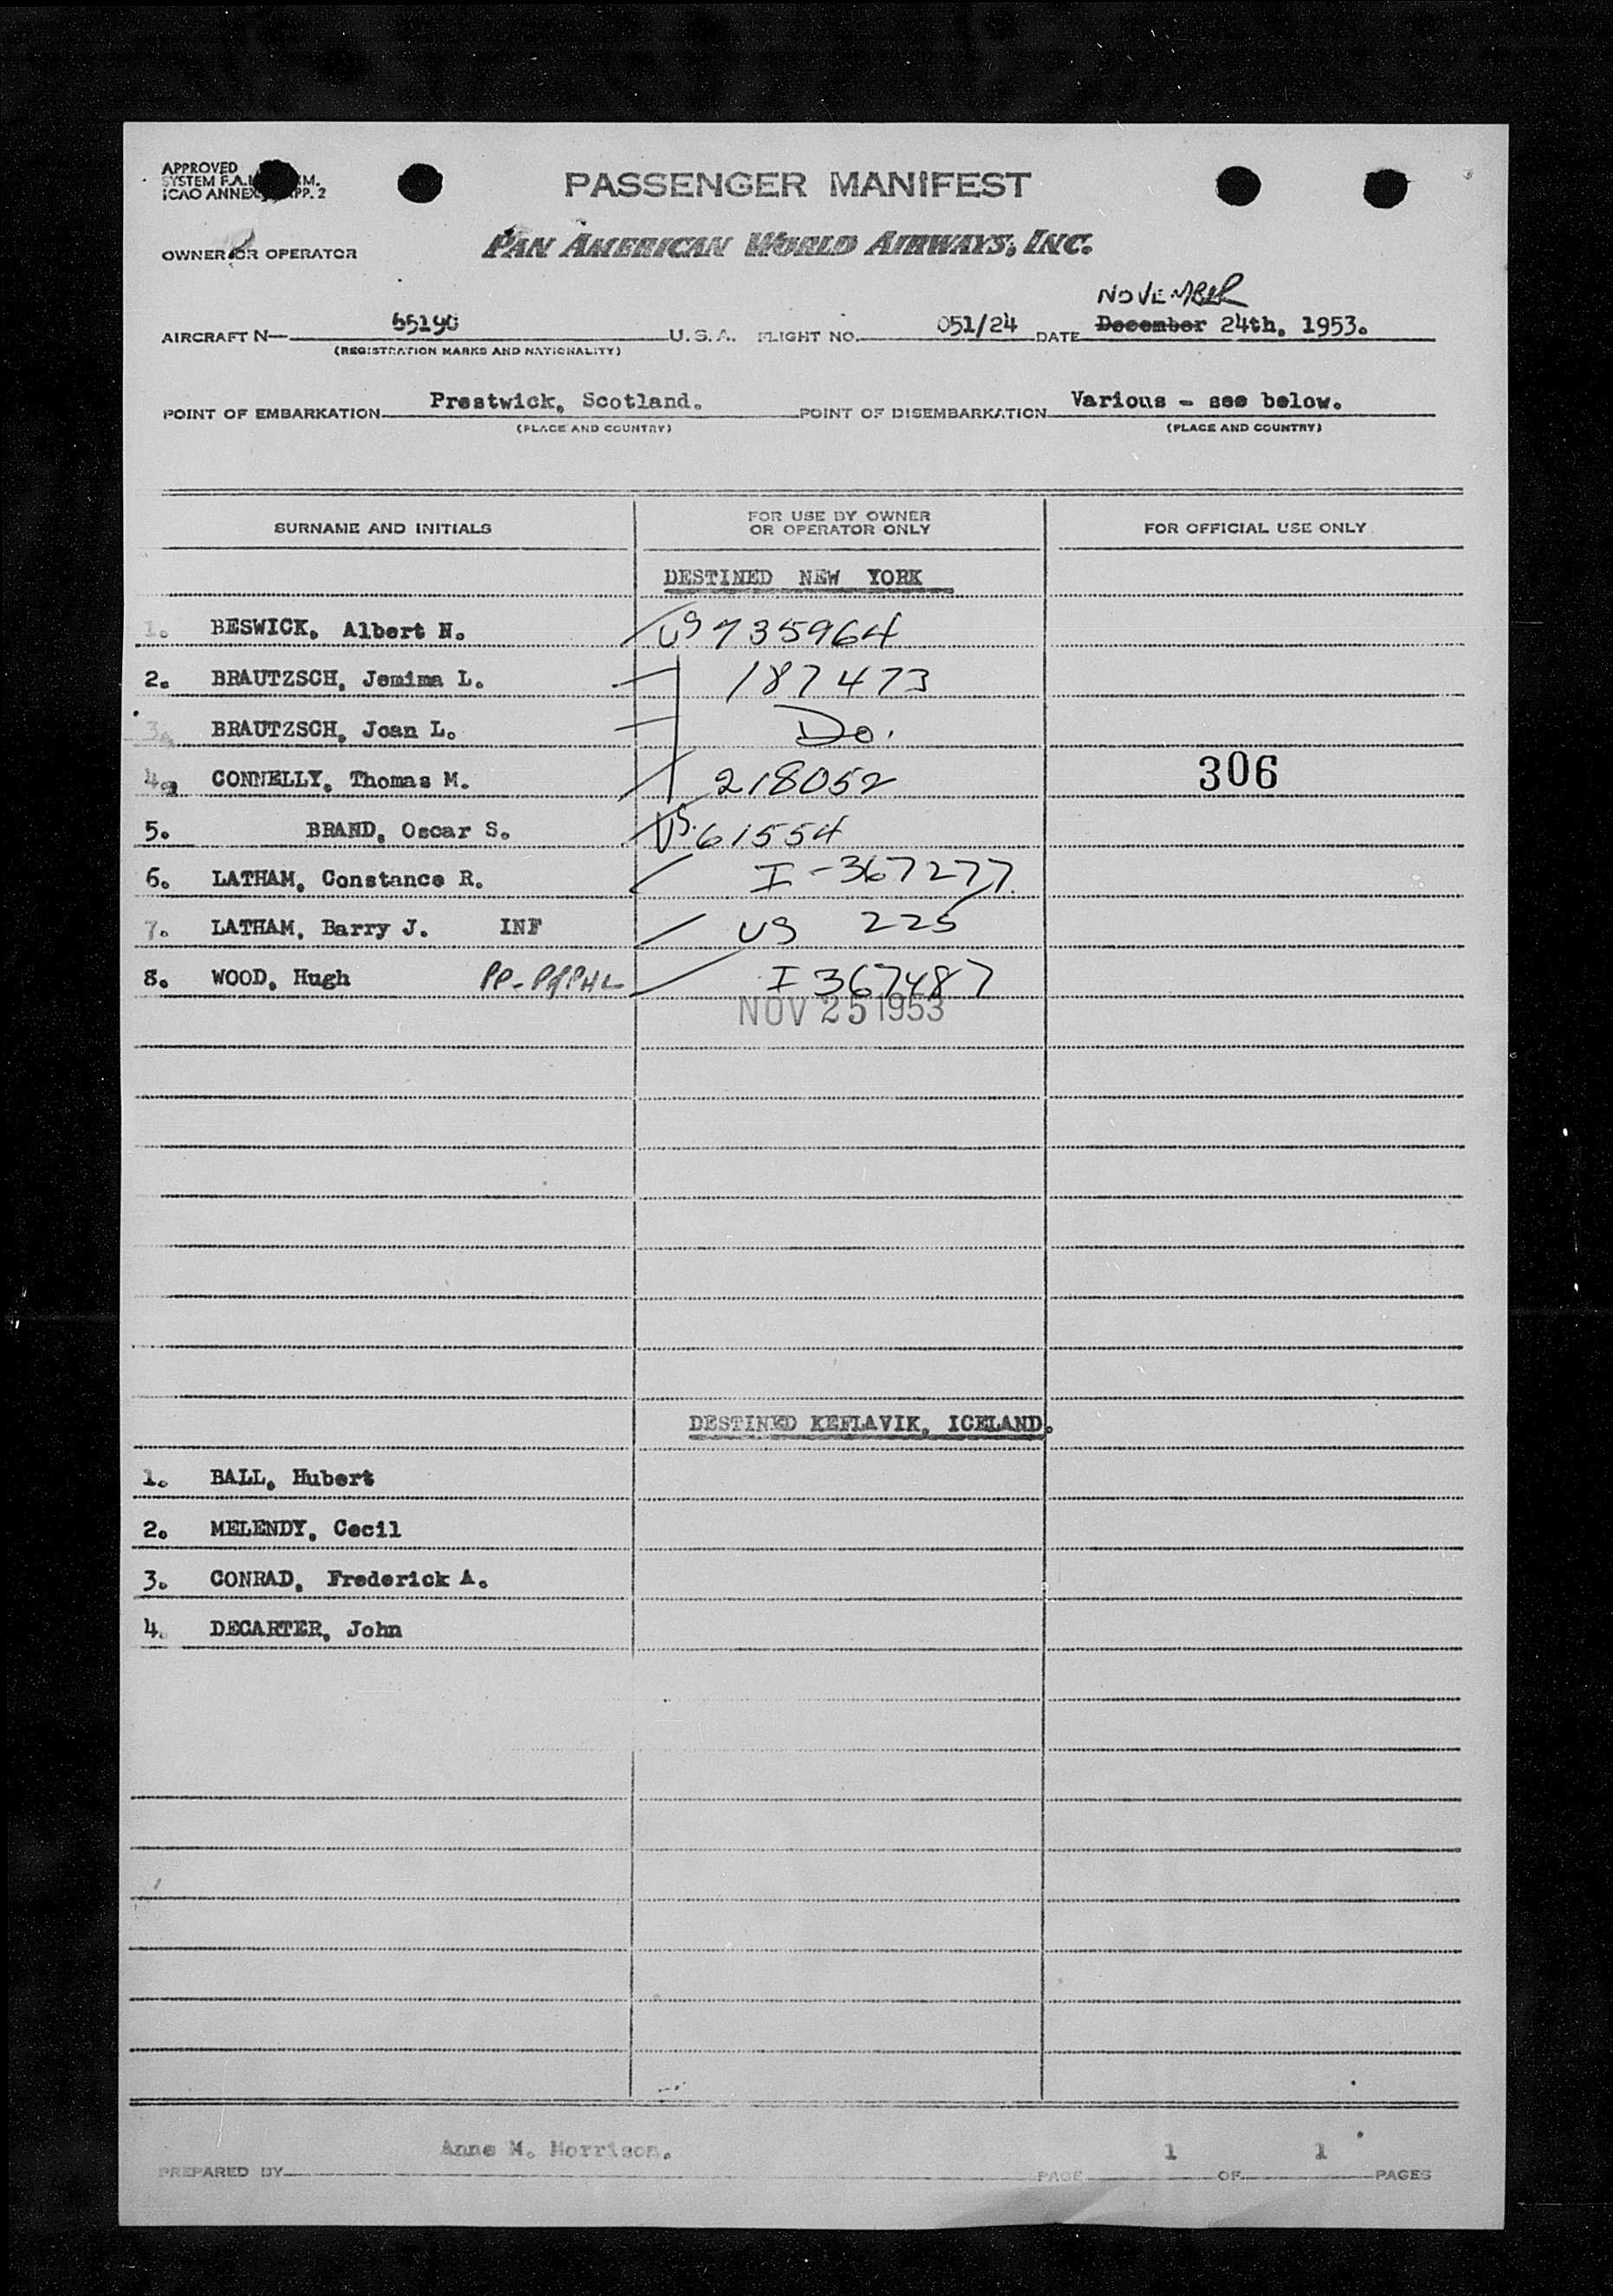 APPROVED
SYSTEM F.A.L. M.
ICAO ANNEX PP. 2
PASSENGER MANIFEST
OWNER OR OPERATOR PAN AMERICAN WORLD AIRWAYS, INC.
NOVEMBER
AIRCRAFT N— U. S. A. FLIGHT NO. 051/24 DATE December 24th, 1953.
(REGISTRATION MARKS AND NATIONALITY)
POINT OF EMBARKATION Prestwick, Scotland. POINT OF DISEMBARKATION Various - see below.
(PLACE AND COUNTRY) (PLACE AND COUNTRY)
SURNAME AND INITIALS FOR USE BY OWNER OR OPERATOR ONLY FOR OFFICIAL USE ONLY
DESTINED NEW YORK
1. BESWICK, Albert N. US 735964
2. BRAUTZSCH, Jemima L. 187473
3. BRAUTZSCH, Joan L. Do.
4. CONNELLY, Thomas M. 218052 306
5. BRAND, Oscar S. US. 61554
6. LATHAM, Constance R. I-367277
7. LATHAM, Barry J. INF US 225
8. WOOD, Hugh I 367487
NOV 25 1953
DESTINED KEFLAVIK, ICELAND.
1. BALL, Hubert
2. MELENDY, Cecil
3. CONRAD, Frederick A.
4. DECARTER, John
PREPARED BY Anne M. Morrison. PAGE 1 OF 1 PAGES